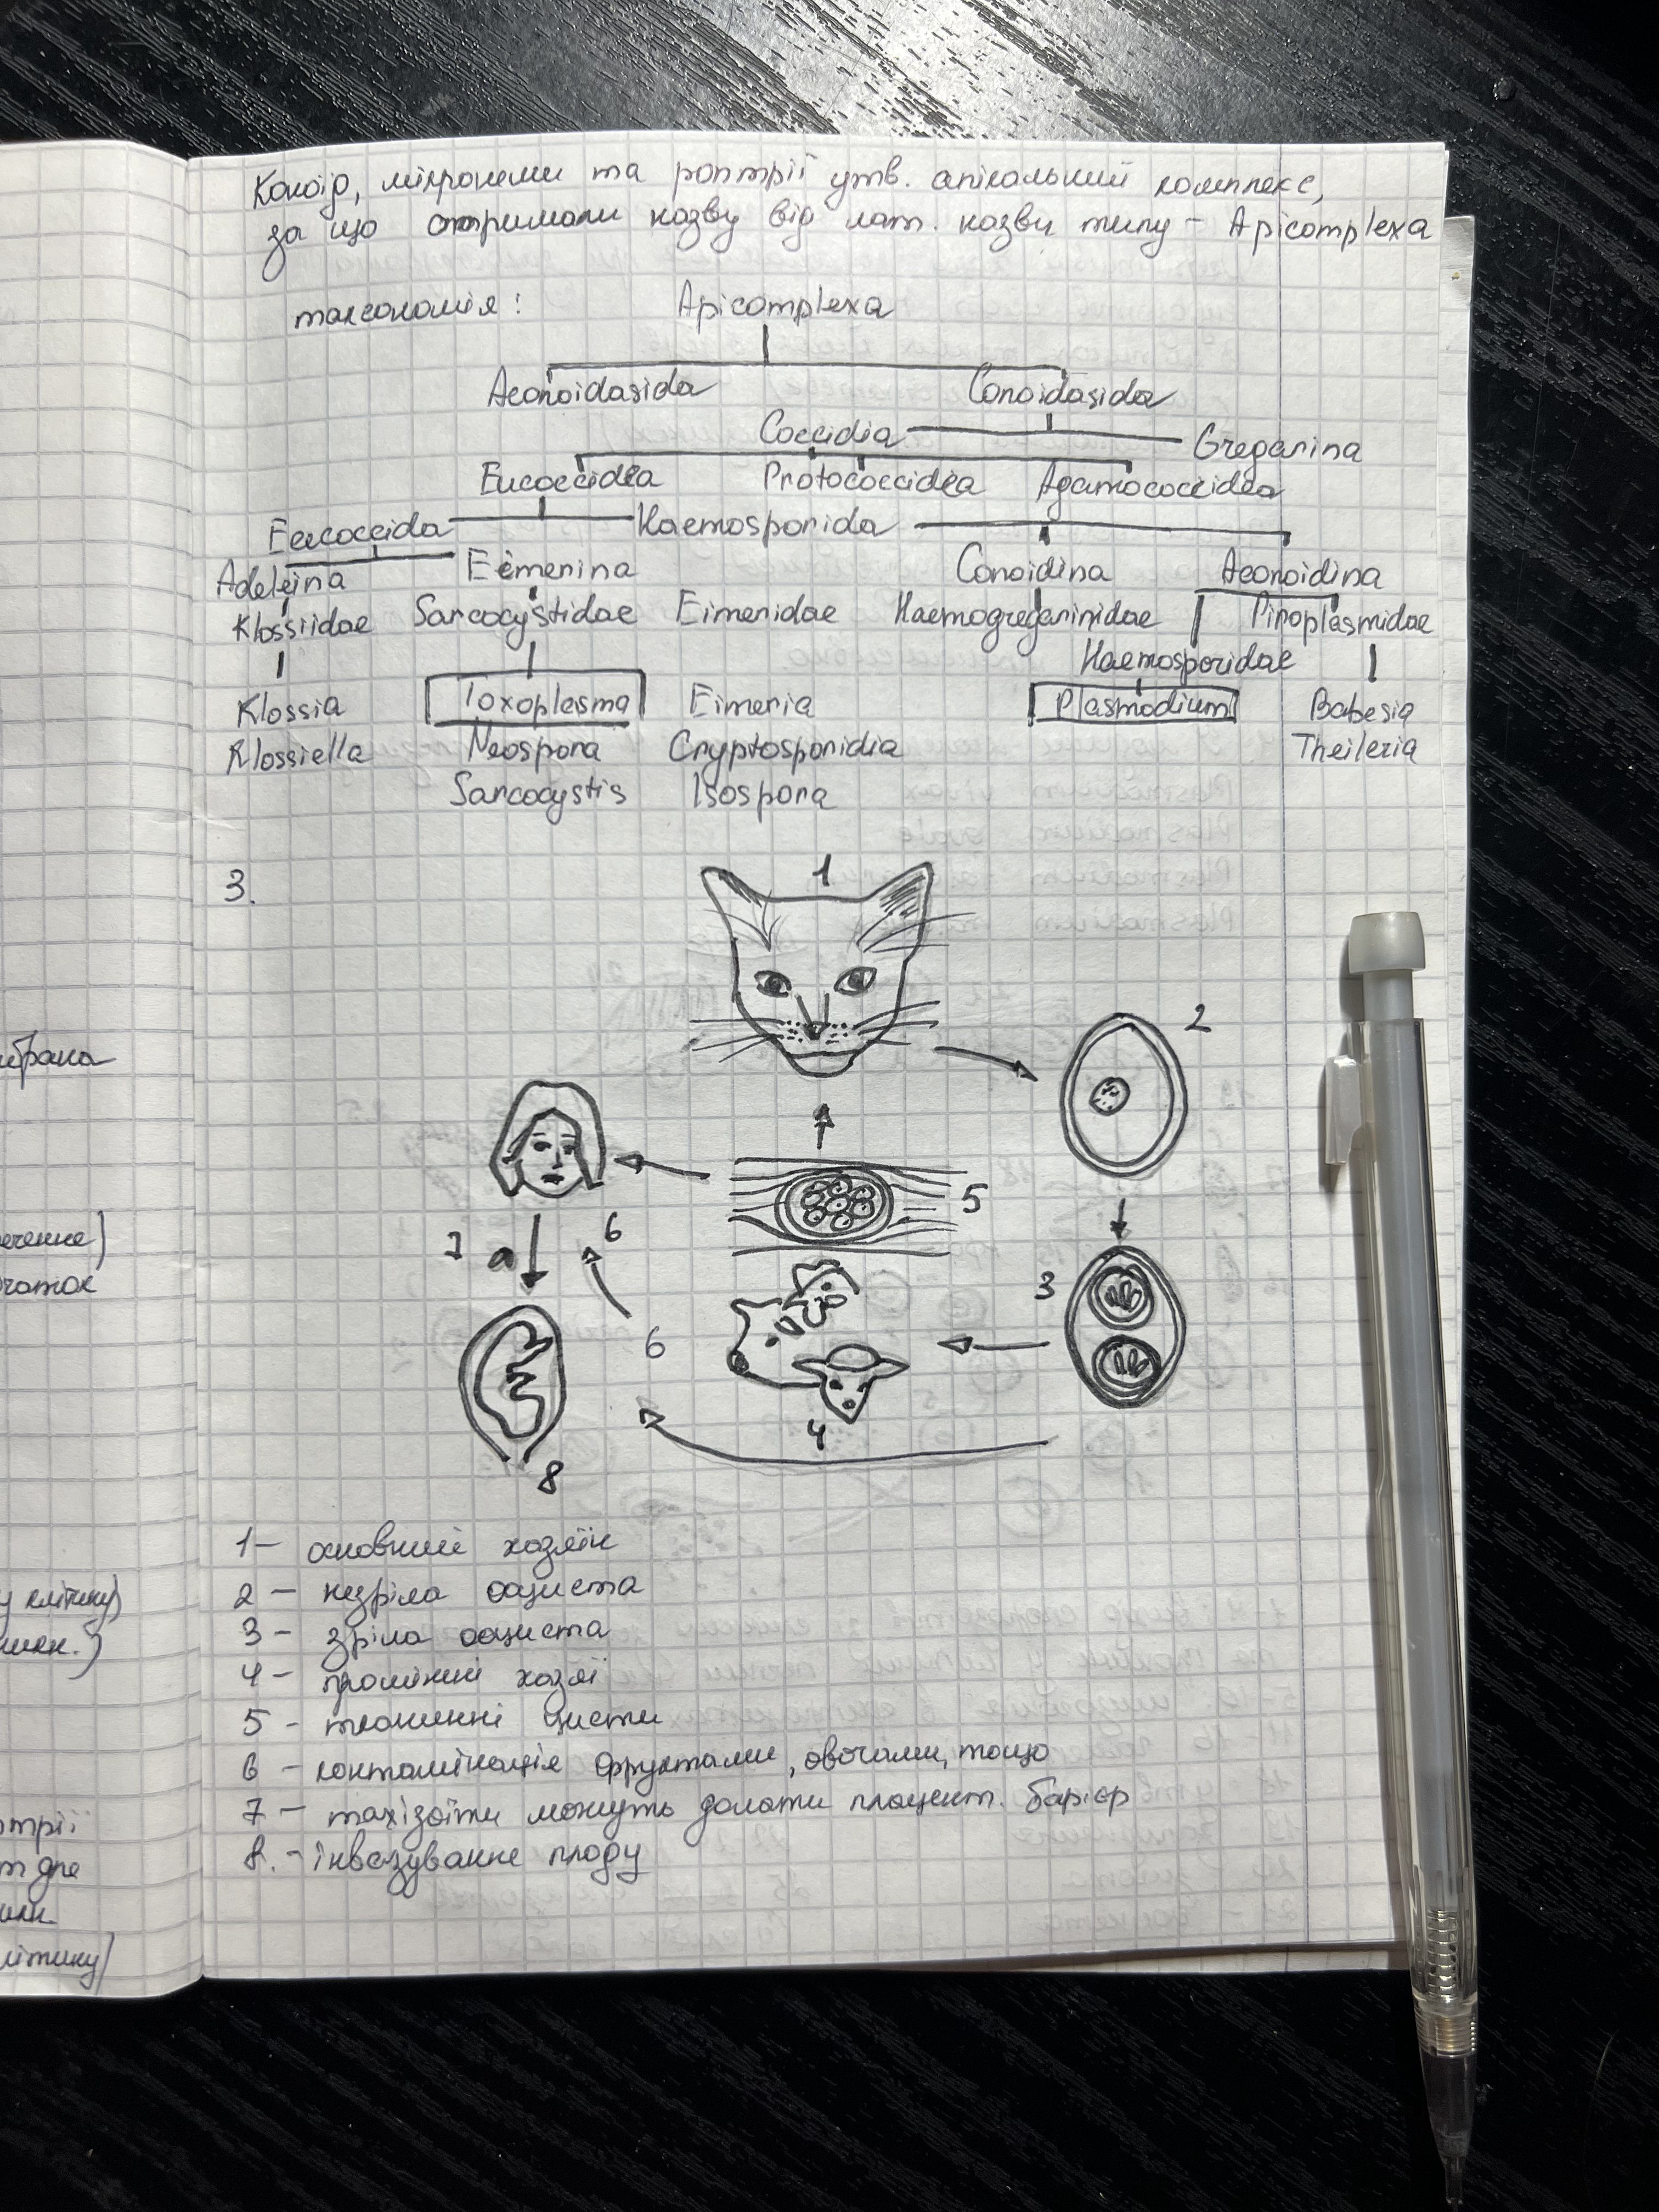 Коноїд, мікронеми та роптрії утв. апікальний комплекс,
за що отримали назву від лат. назви типу - Apicomplexa
таксономія: Apicomplexa
Aconoidasida Conoidasida
Coccidia Gregarina
Eucoccidea Protococcidea Agamococcidea
Eucoccida Haemosporida
Adeleina Eimerina Conoidina Aconoidina
Klossiidae Sarcocystidae Eimeridae Haemogregarinidae Piroplasmidae
Haemosporidae
Klossia Toxoplasma Eimeria Plasmodium Babesia
Klossiella Neospora Cryptosporidia Theileria
Sarcocystis Isospora
3.
1
2
5
6
7 a
3
6
4
8
1 - основний хазяїн
2 - незріла ооциста
3 - зріла ооциста
4 - проміжні хазяї
5 - тканинні цисти
6 - контамінація фруктами, овочами, тощо
7 - тахізоїти можуть долати плацент. барієр
8. - інвазування плоду